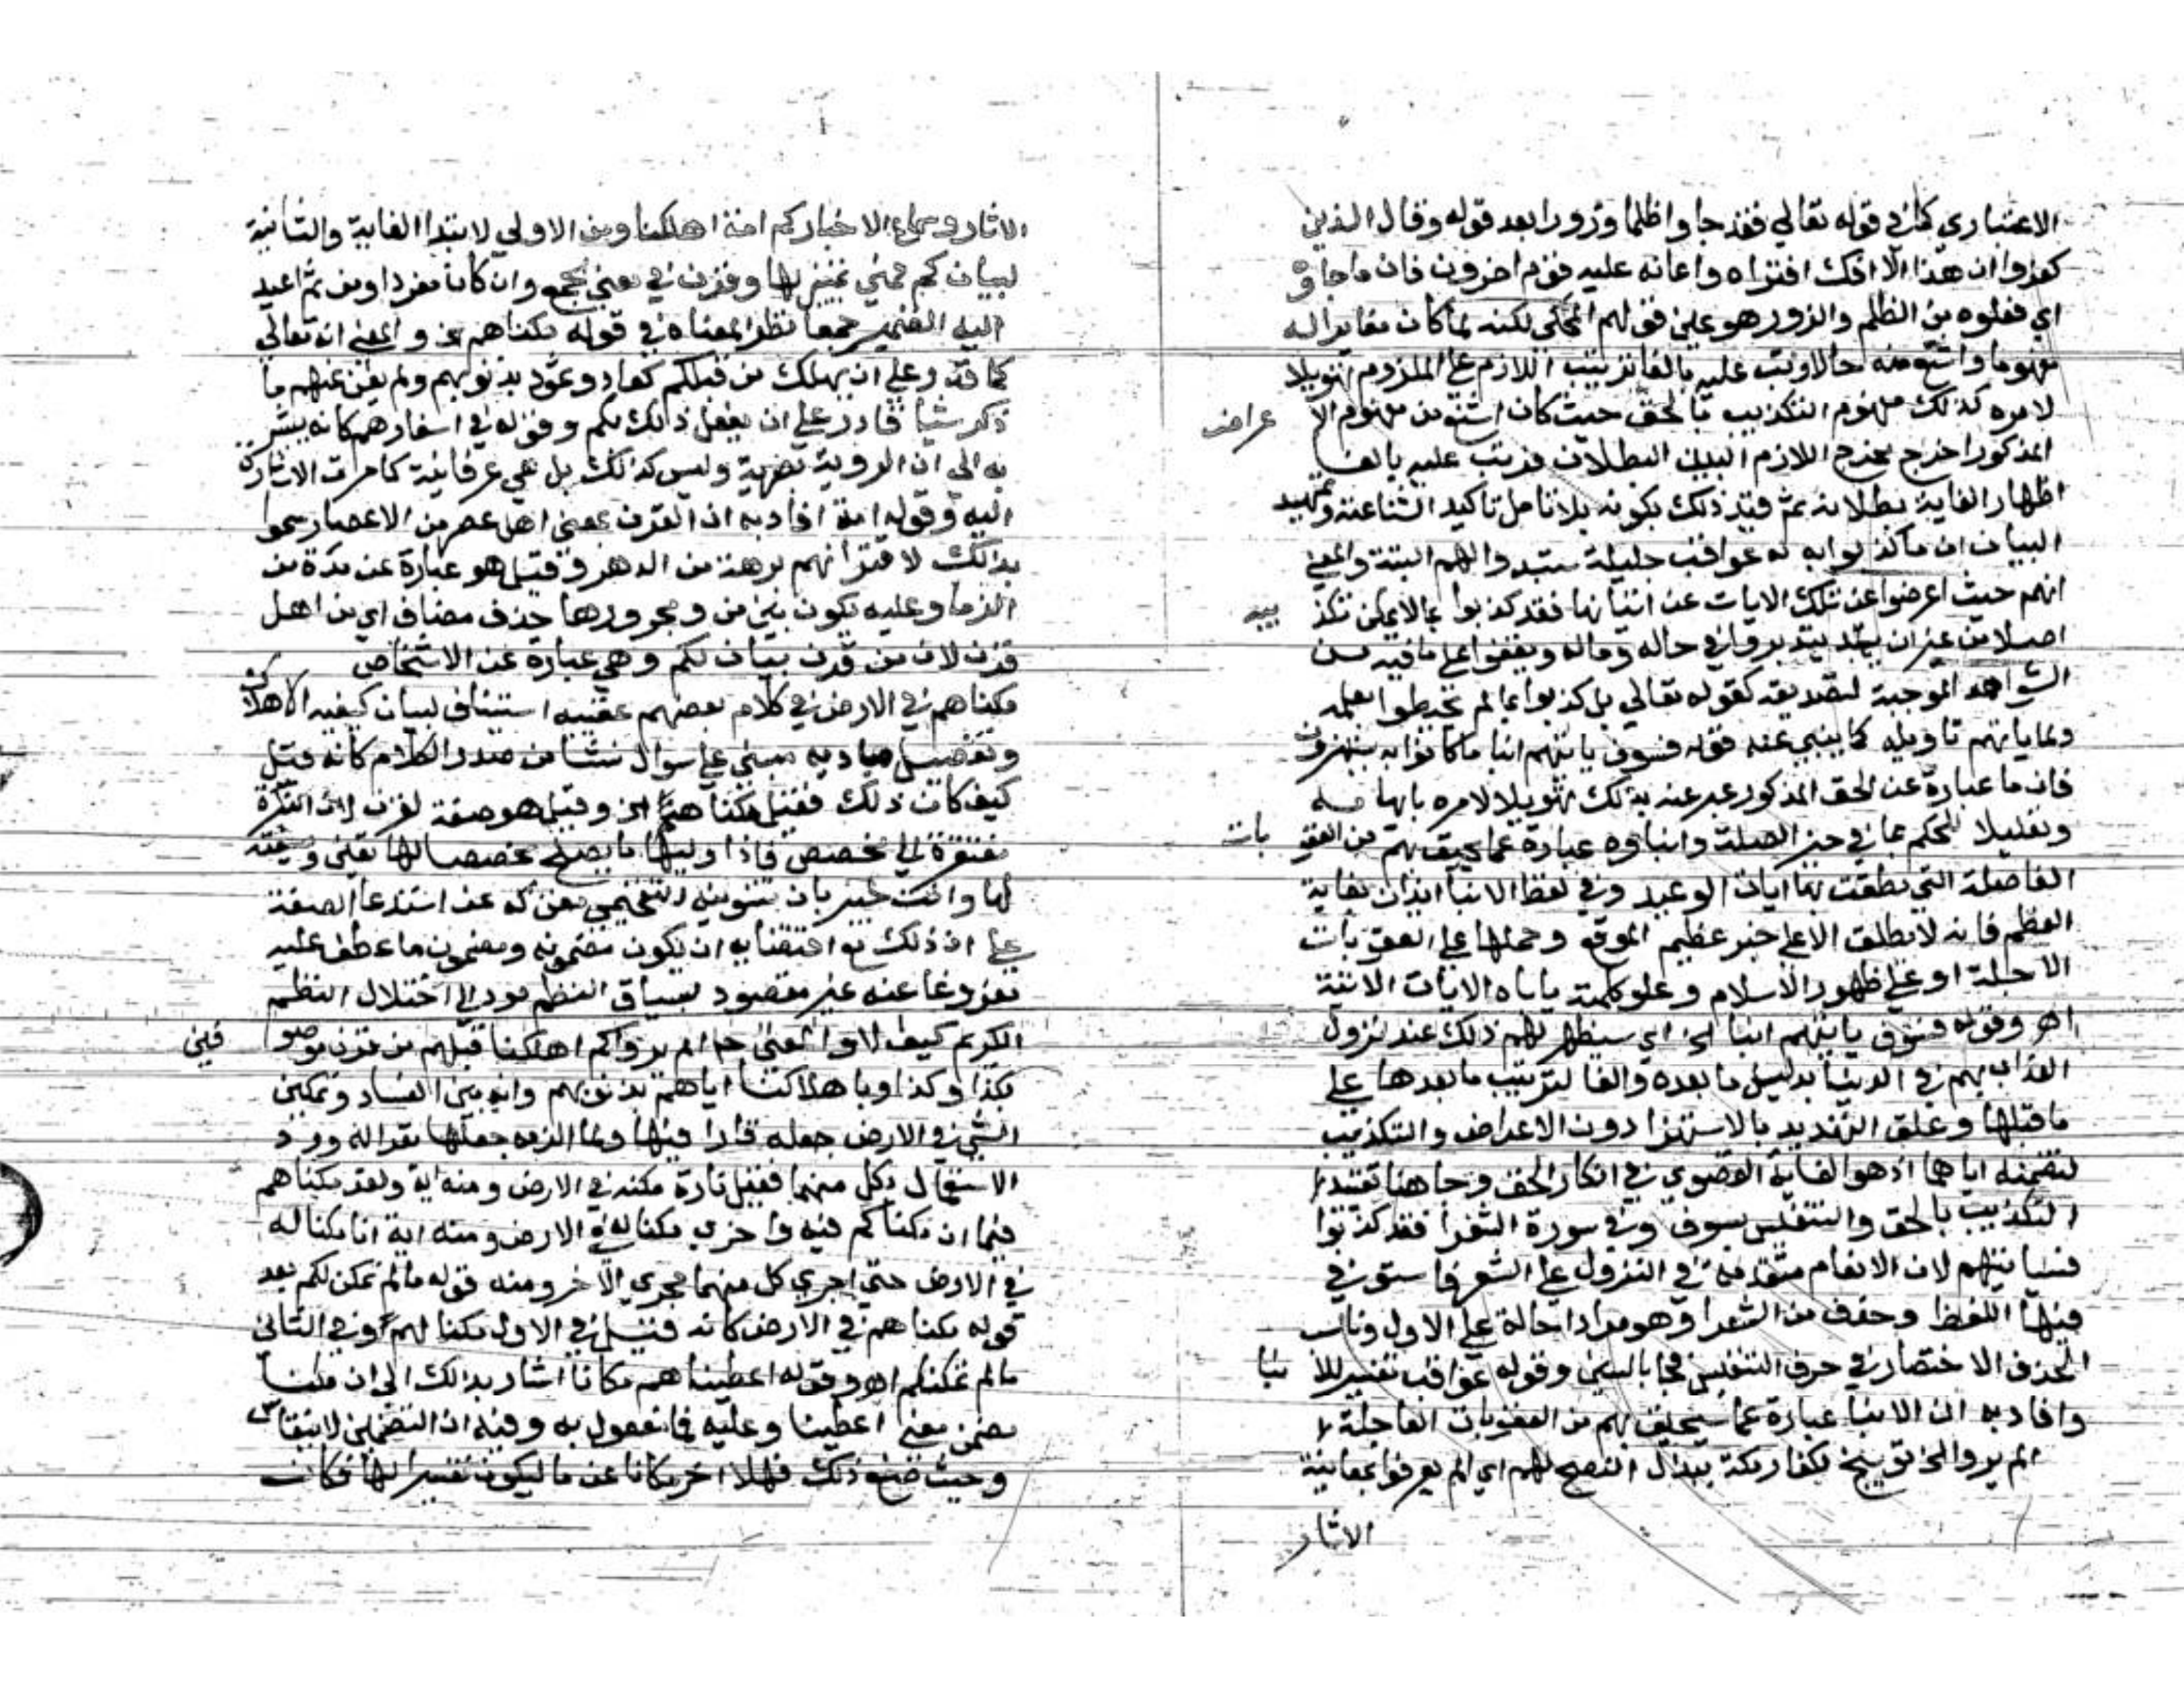 الاعتباري كما في قوله تعالي فقد جاوا ظلما وزورا بعد قوله وقال الذين
كفروا ان هذا الا افك افتراه واعانه عليه قوم اخرون فان ما جاوه
اي فعلوه من الظلم والزور هو عين قولهم المحكي لكنه لما كان مغايرا له
مفهوما واشنع منه حالا رتب عليه بالفا ترتيب اللازم علي الملزوم تهويلا
لامره كذلك مفهوم التكذيب بالحق حيث كان اشنع من مفهوم الاعراض
المذكور اخرج مخرج اللازم البين البطلان فرتب عليه بالفا
اظهارا لغاية بطلانه ثم قيد ذلك بكونه بلا تامل تاكيد الشناعته وتمهيد
البيان ان ما كذبوا به له عواقب جليلة ستبدوا لهم البتة والمعني
انهم حيث اعرضوا عن تلك الايات عن اتيانها فقد كذبوا بما لا يمكن تكذيبه
اصلا من غير ان يتدبروا في حاله وماله ويقفوا علي ما فيه من
الشواهد الموجبة لتصديقه كقوله تعالي بل كذبوا بما لم يحيطوا بعلمه
ولما ياتهم تاويله كما ينبي عنه قوله فسوف ياتيهم انبا ما كانوا به يستهزون
فان ما عبارة عن الحق المذكور عبر عنه بذلك تهويلا لامره بابهامه
وتعليلا للحكم بما في حيز الصلة وانباوه عبارة عما يحيق بهم من العقوبات
الفاصلة التي نطقت بها ايات الوعيد وفي لفظ الانبا ايذان بغاية
العظم فانه لا يطلق الا علي خبر عظيم الموقع وحملها علي العقوبات
الاجلة او علي ظهور الاسلام وعلو كلمته ياباه الايات الاتية
اهـ وقوله فسوف ياتيهم انبا الخ اي سيظهر لهم ذلك عند نزول
العذاب بهم في الدنيا بدليل ما بعده والفا لترتيب ما بعدها علي
ما قبلها وعلق التهديد بالاستهزا دون الاعراض والتكذيب
لتضمنه اياهما اذ هو الغاية القصوي في انكار الحق وجا هنا تقييد
التكذيب بالحق والتنفيس بسوف وفي سورة الشعرا فقد كذبوا
فسياتيهم لان الانعام متقدمة في النزول علي الشعرا فاستوفي
فيها اللفظ وحذف من الشعرا وهو مراد احالة علي الاول وناسب
الحذف الاختصار في حرف التنفيس فجا بالسين وقوله عواقب تفسير للانبا
وافاد به ان الانبا عبارة عما سيحيق بهم من العقوبات العاجلة
الم يروا الخ توبيخ لكفار مكة ببذل النصح لهم اي الم يعرفوا بمعاينة
الاثار
الاثار وسماع الاخباركم امة اهلكنا ومن الاولي لابتدا الغاية والثانية
لبيان كم فهي تمييز لها وقرن في معني الجمع وان كان مفردا ومن ثم اعيد
اليه الضمير جمعا نظرا لمعناه في قوله مكناهم الخ والمعني انه تعالي
كما قدر علي ان يهلك من قبلكم كعاد وثمود بذنوبهم ولم يغن عنهم ما
ذكر شيا قادر علي ان يفعل ذلك بكم وقوله في اسفارهم كانه يشير
به الي ان الروية بصرية وليس كذلك بل هي عرفانية كما مرت الاشارة
اليه وقوله امة افاد به ان القرن بمعني اهل عصر من الاعصار سموا
بذلك لاقترانهم برهة من الدهر وقيل هو عبارة عن مدة من
الزمان وعليه يكون بين من ومجرورها حذف مضاف اي من اهل
قرن لان من قرن بيان لكم وهي عبارة عن الاشخاص
مكناهم في الارض في كلام بعضهم عقبه استيناف لبيان كيفيه الاهلاك
وتفصيل مباديه مبني علي سوال نشا من صدر الكلام كانه قيل
كيف كان ذلك فقيل مكناهم الخ وقيل هو صفة لقرن لان النكرة
مفتقرة الي مخصص فاذا وليها ما يصلح مخصصا لها تعين وصفيته
لها وانت خبير بان تنوينه التفخيمي مغن له عن استدعا الصفة
علي ان ذلك مع اقتضايه ان يكون مضمونه ومضمون ما عطف عليه
مفروغا عنه غير مقصود لسياق النظم مود الي اختلال النظم
الكريم كيف لا والمعني ح الم يروا كم اهلكنا قبلهم من قرن موصوفين
بكذا وكذا وباهلاكنا اياهم بذنوبهم وانه بين الفساد وتمكين
الشي في الارض جعله قارا فيها ولما الزمه جعلها مقرا له ورد
الاستعمال بكل منهما فقيل تارة مكنه في الارض ومنه اية ولقد مكناهم
فيما ان مكناكم فيه واخري مكنا له في الارض ومنه اية انا مكنا له
في الارض حتي اجري كل منهما مجري الاخر ومنه قوله ما لم نمكن لكم بعد
قوله مكناهم في الارض كانه قيل في الاول مكنا لهم او في الثاني
ما لم نمكنكم اهـ وقوله اعطيناهم مكانا اشار بذلك الي ان مكنا
بضمن معني اعطينا وعليه فا مفعول به وفيه ان التضمين لا ينقاس
وحيث صنع ذلك فهلا اخر مكانا عن ما ليكون تفسيرا لها فكانت